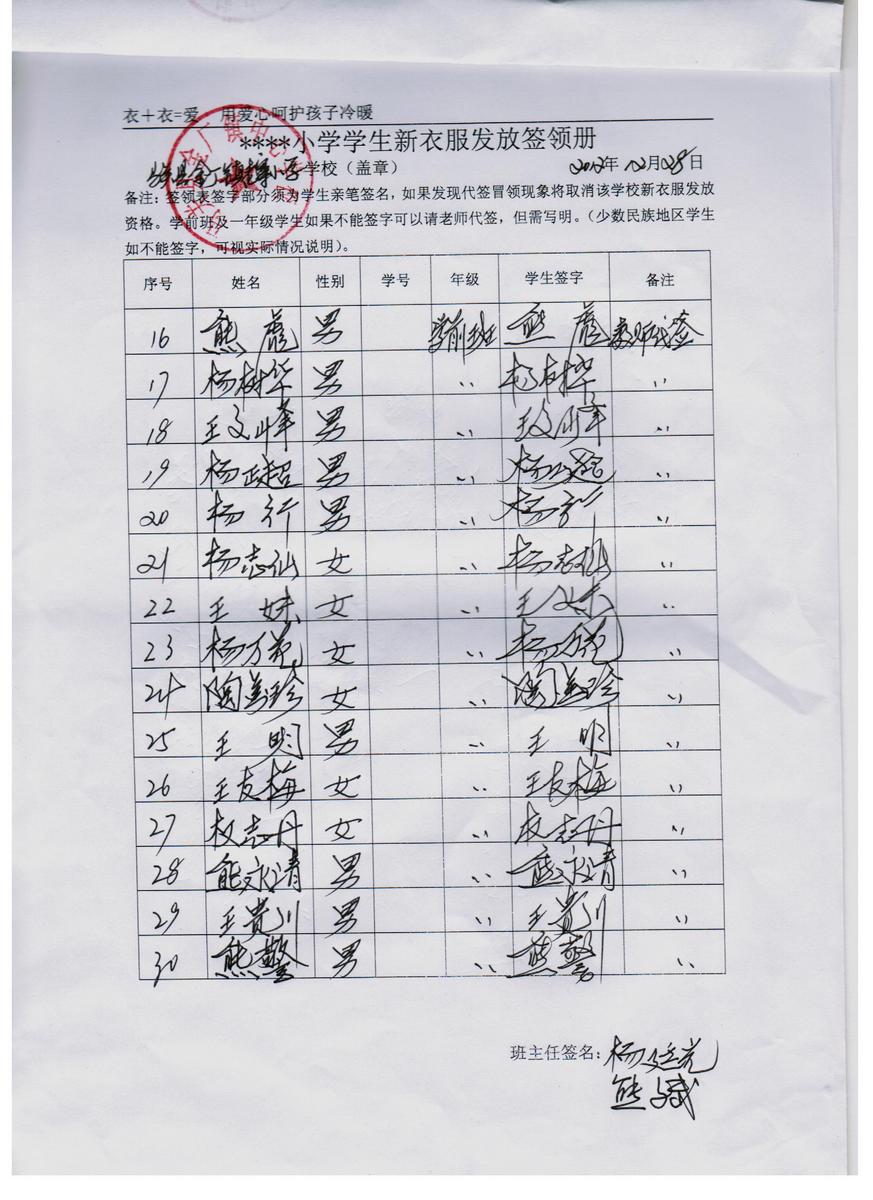 衣+衣=爱 用爱心呵护孩子冷暖
****小学学生新衣服发放签领册
学校（盖章） 2012年12月28日
备注：签领表签字部分须为学生亲笔签名，如果发现代签冒领现象将取消该学校新衣服发放
资格。学前班及一年级学生如果不能签字可以请老师代签，但需写明。（少数民族地区学生
如不能签字，可视实际情况说明）。
序号 姓名 性别 学号 年级 学生签字 备注
16 熊彪 男 学前班 熊彪 教师代签
17 杨树华 男 〃 杨树华 〃
18 王文峰 男 〃 王文峰 〃
19 杨正超 男 〃 杨正超 〃
20 杨行 男 〃 杨行 〃
21 杨志仙 女 〃 杨志仙 〃
22 王妹 女 〃 王妹 〃
23 杨万苑 女 〃 杨万苑 〃
24 陶美珍 女 〃 陶美珍 〃
25 王明 男 〃 王明 〃
26 王友梅 女 〃 王友梅 〃
27 权志丹 女 〃 权志丹 〃
28 熊永清 男 〃 熊永清 〃
29 王贵川 男 〃 王贵川 〃
30 熊警 男 〃 熊警 〃
班主任签名：杨廷
熊斌